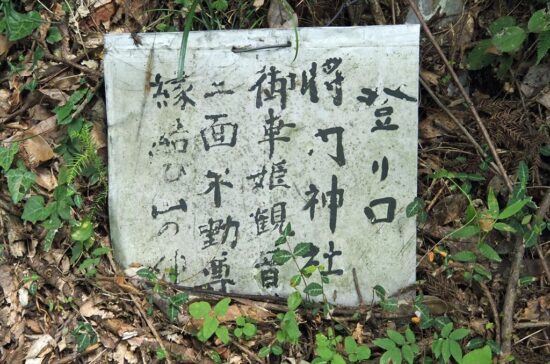 登リ口
将門神社
御車姫観音
二面不動尊
縁結び山の神